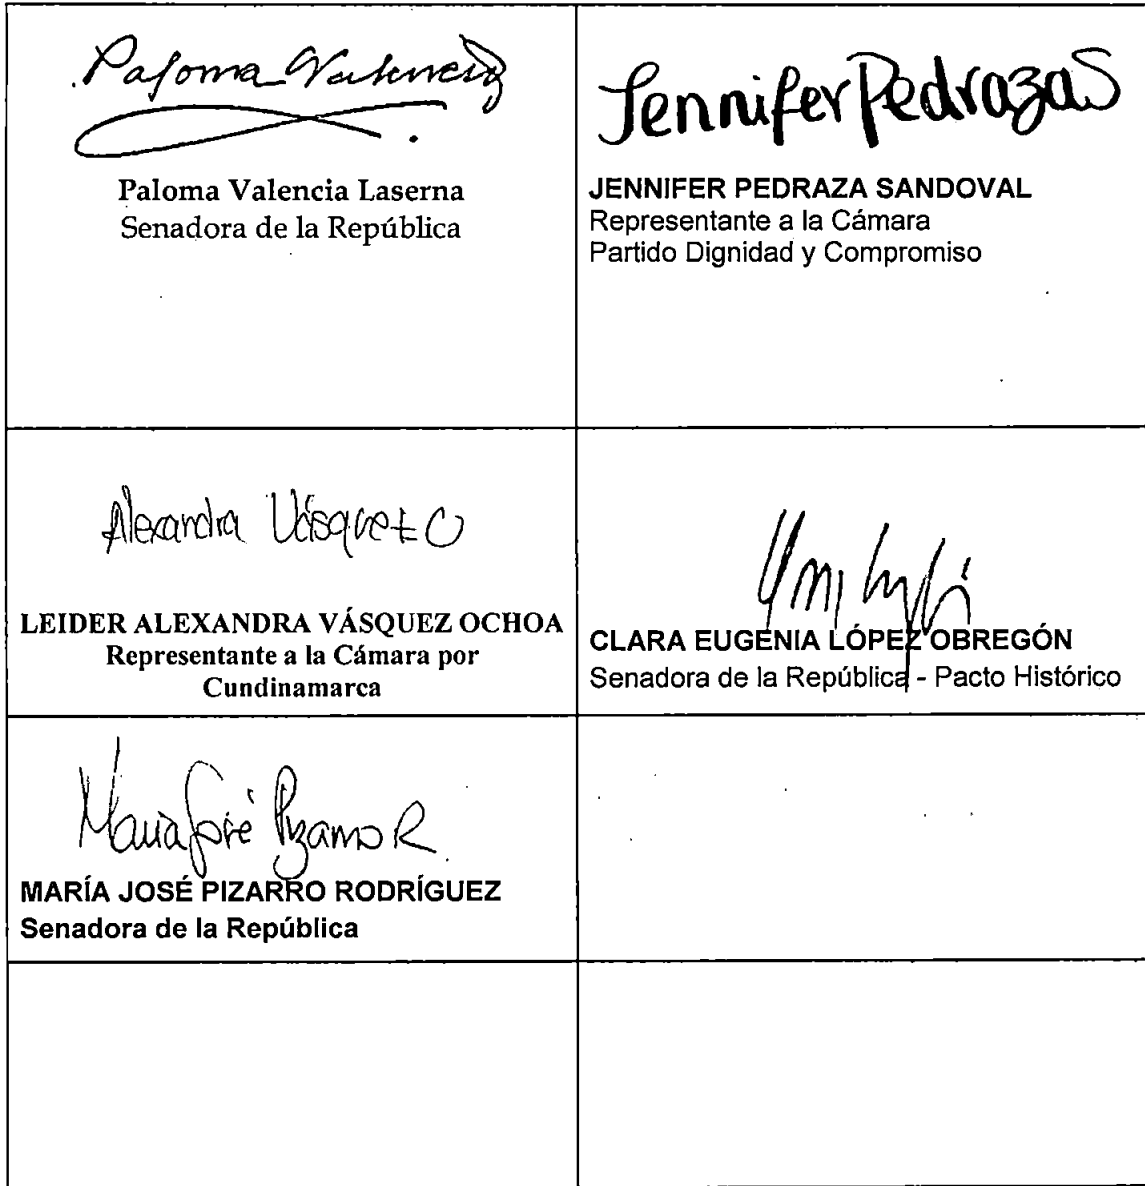 Paloma Valencia
Paloma Valencia Laserna
Senadora de la República
Jennifer Pedraza S
JENNIFER PEDRAZA SANDOVAL
Representante a la Cámara
Partido Dignidad y Compromiso
Alexandra Vásquez O
LEIDER ALEXANDRA VÁSQUEZ OCHOA
Representante a la Cámara por
Cundinamarca
CLARA EUGENIA LÓPEZ OBREGÓN
Senadora de la República - Pacto Histórico
María José Pizarro R
MARÍA JOSÉ PIZARRO RODRÍGUEZ
Senadora de la República